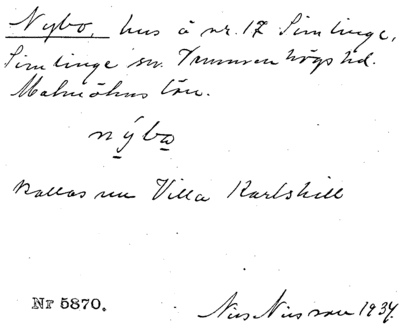 Nybo, hus å nr. 17 Simlinge,
Simlinge sn. Vemmenhögs hd.
Malmöhus län.
nýbo
Kallas nu Villa Karlshill
Nr 5870.
Nils Nilsson 1934.